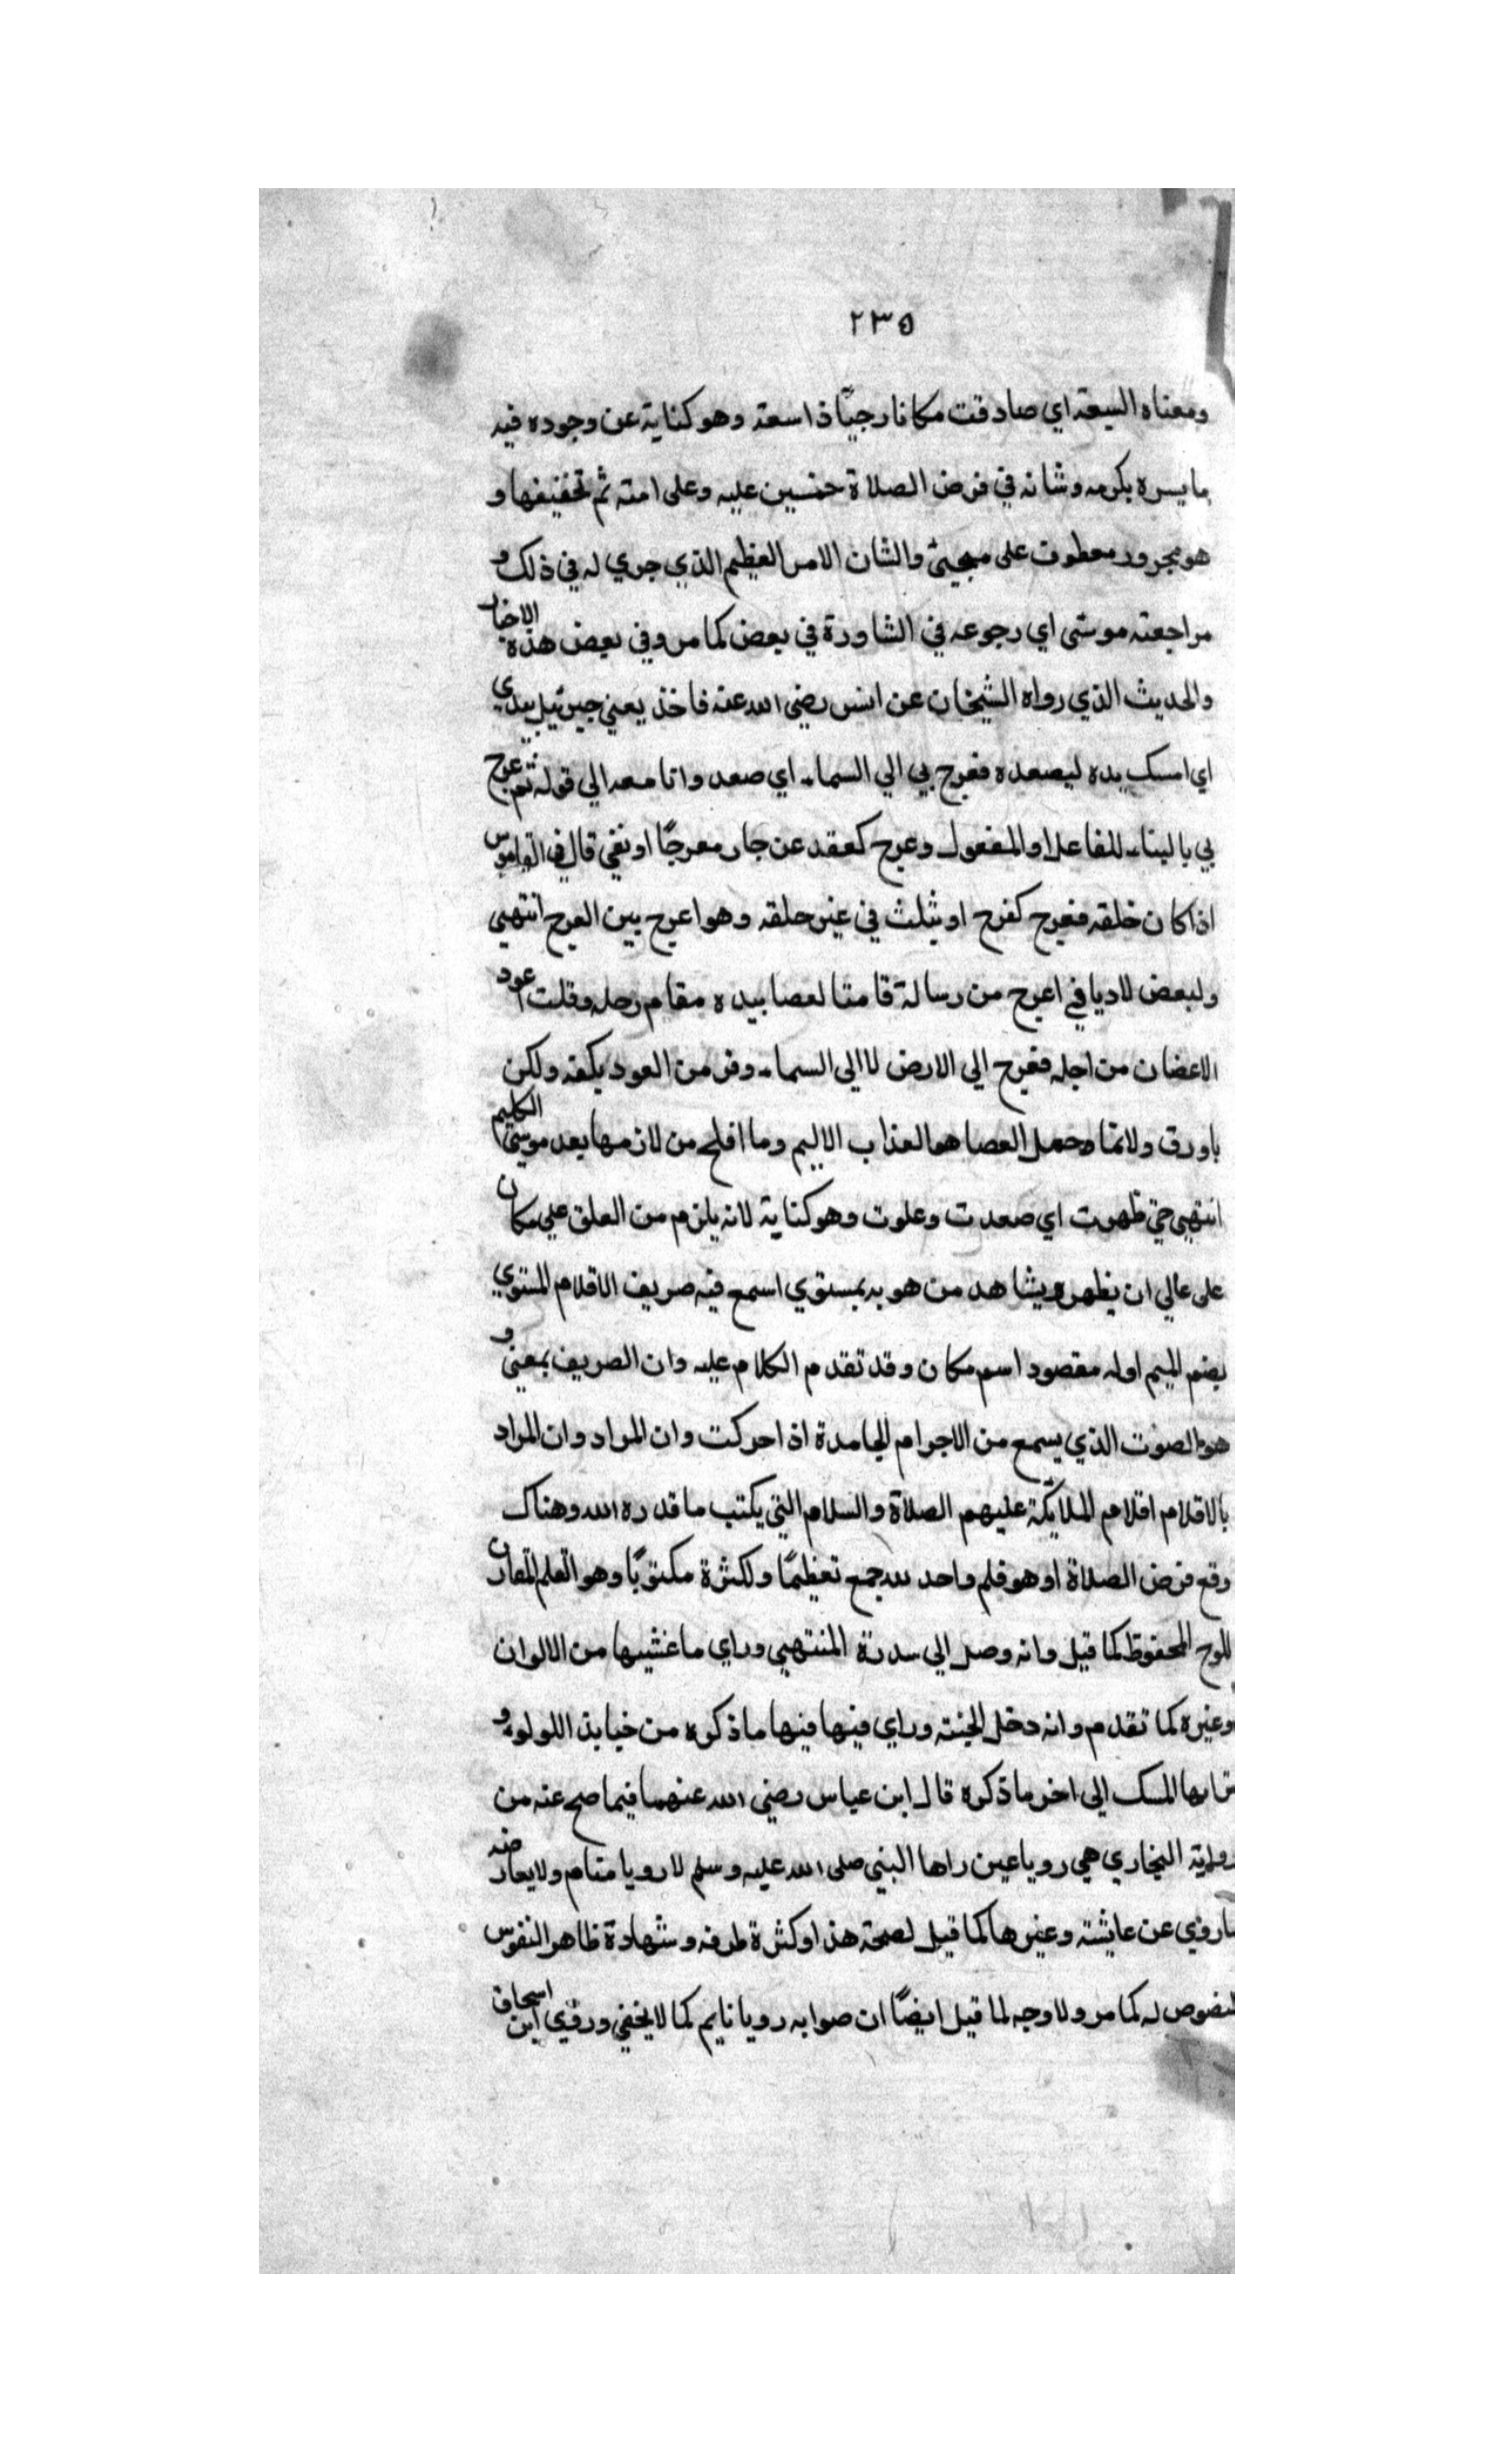 ٢٣٥
ومعناه السعة اي صادفت مكانا رحبًا ذا سعة وهو كناية عن وجوده فيه
ما يسره بكرمه وشانه في فرض الصلاة خمسين عليه وعلى امته ثم تخفيفها و
هو مجرور معطوف على مجيئ والشان الامر العظيم الذي جري له في ذلك و
مراجعته موسى اي رجوعه في الشاورة في بعض كما مر وفي بعض هذه الاخبار
والحديث الذي رواه الشيخان عن انس رضي الله عنه فاخذ يعني جبرئيل بيدي
اي امسك يده ليصعده فعرج بي الي السماء اي صعد وانا معه الي قوله ثم عرج
بي بالبناء للفاعل او المفعول وعرج كعقد عن جار معرجًا او نفي قال في القاموس
اذا كان خلقه فعرج كفرح او يثلث في غير خلقه وهو اعرج بين العرج انتهي
ولبعض لادبا في اعرج من رسالة قامتا لعصا بيده مقام رجله وقلت اعود
الاغصان من اجله فعرج الي الارض لا الي السماء وفر من العود بكفه ولكن
باورق ولاتما وحمل العصا هو العذاب الاليم وما افلح من لازمها بعد موسى الكليم
انتهي حتي ظهرت اي صعدت وعلوت وهو كناية لانه يلزم من العلق علي مكان
على عالي ان يظهر ويشاهد من هو به بمستوي اسمع فيه صريف الاقلام المستوي
بضم الميم اوله مقصود اسم مكان وقد تقدم الكلام عليه وان الصريف بمعني و
هو الصوت الذي يسمع من الاجرام الجامدة اذا حركت وان المراد وان المراد
بالاقلام اقلام الملايكة عليهم الصلاة والسلام التي يكتب ما قدره الله وهناك
وقع فرض الصلاة او هو قلم واحد لله جمع تعظيمًا ولكثرة مكتوبًا وهو القلم المقارن
للوح المحفوظ كما قيل وانه وصل الي سدرة المنتهي وراي ما غشيها من الالوان
وغيره كما تقدم وانه دخل الجنة وراي فيها فيها ما ذكره من خيابذ اللولو و
ترابها المسك الي اخر ما ذكره قال ابن عباس رضي الله عنهما فيما صح عنه من
رواية البخاري هي رويا عين راها النبي صلى الله عليه وسلم لا رويا منام ولا يعارضه
ما روي عن عايشة وغيرها كما قيل لصحة هذا وكثرة طرفه وشهادة ظاهر النفوس
لنصوص له كما مر ولا وجه لما قيل ايضًا ان صوابه رويا نايم كما لا يخفي وروي ابن اسحاق